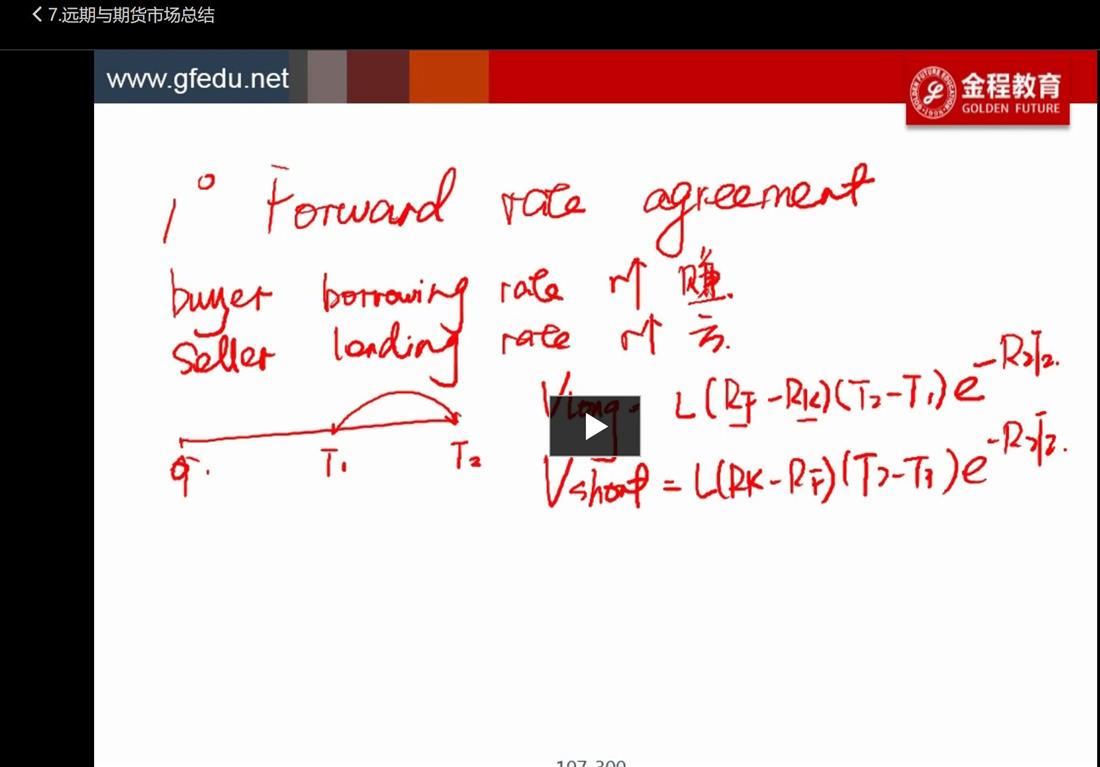 7.远期与期货市场总结
www.gfedu.net
金程教育
GOLDEN FUTURE
1° Forward rate agreement
buyer borrowing rate ↑ 赚.
Seller lending rate ↑ 亏.
Vlong = L(RF-RK)(T₂-T₁)e^-R₂T₂.
0 T₁ T₂
Vshort = L(RK-RF)(T₂-T₁)e^-R₂T₂.